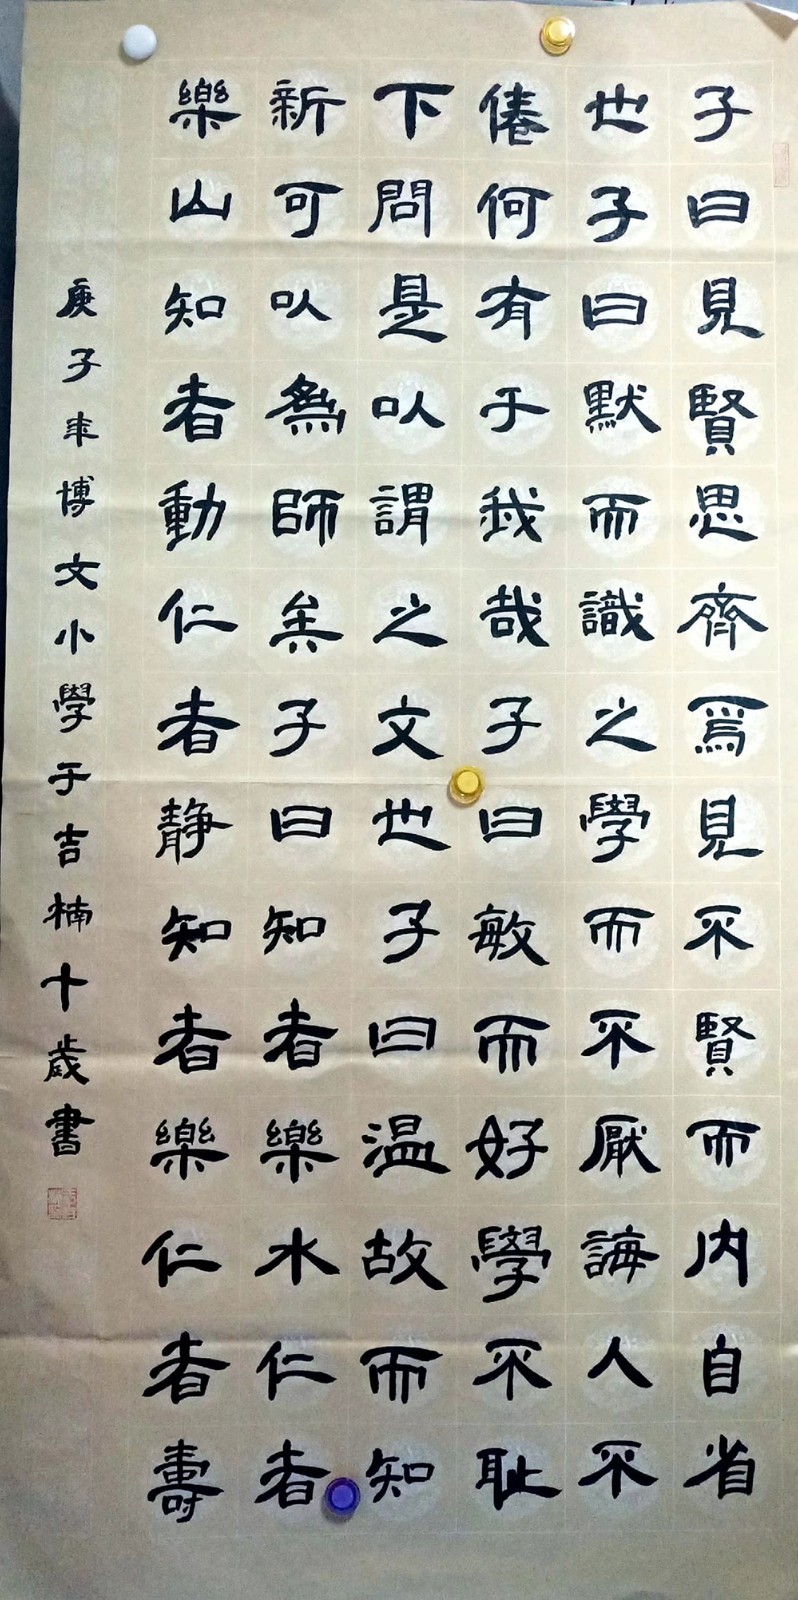 子曰見賢思齊焉見不賢而内自省
也子曰默而識之學而不厭誨人不
倦何有于我哉子曰敏而好學不恥
下問是以謂之文也子曰温故而知
新可以為師矣子曰知者樂水仁者
樂山知者動仁者靜知者樂仁者壽
庚子年博文小學于吉楠十歲書